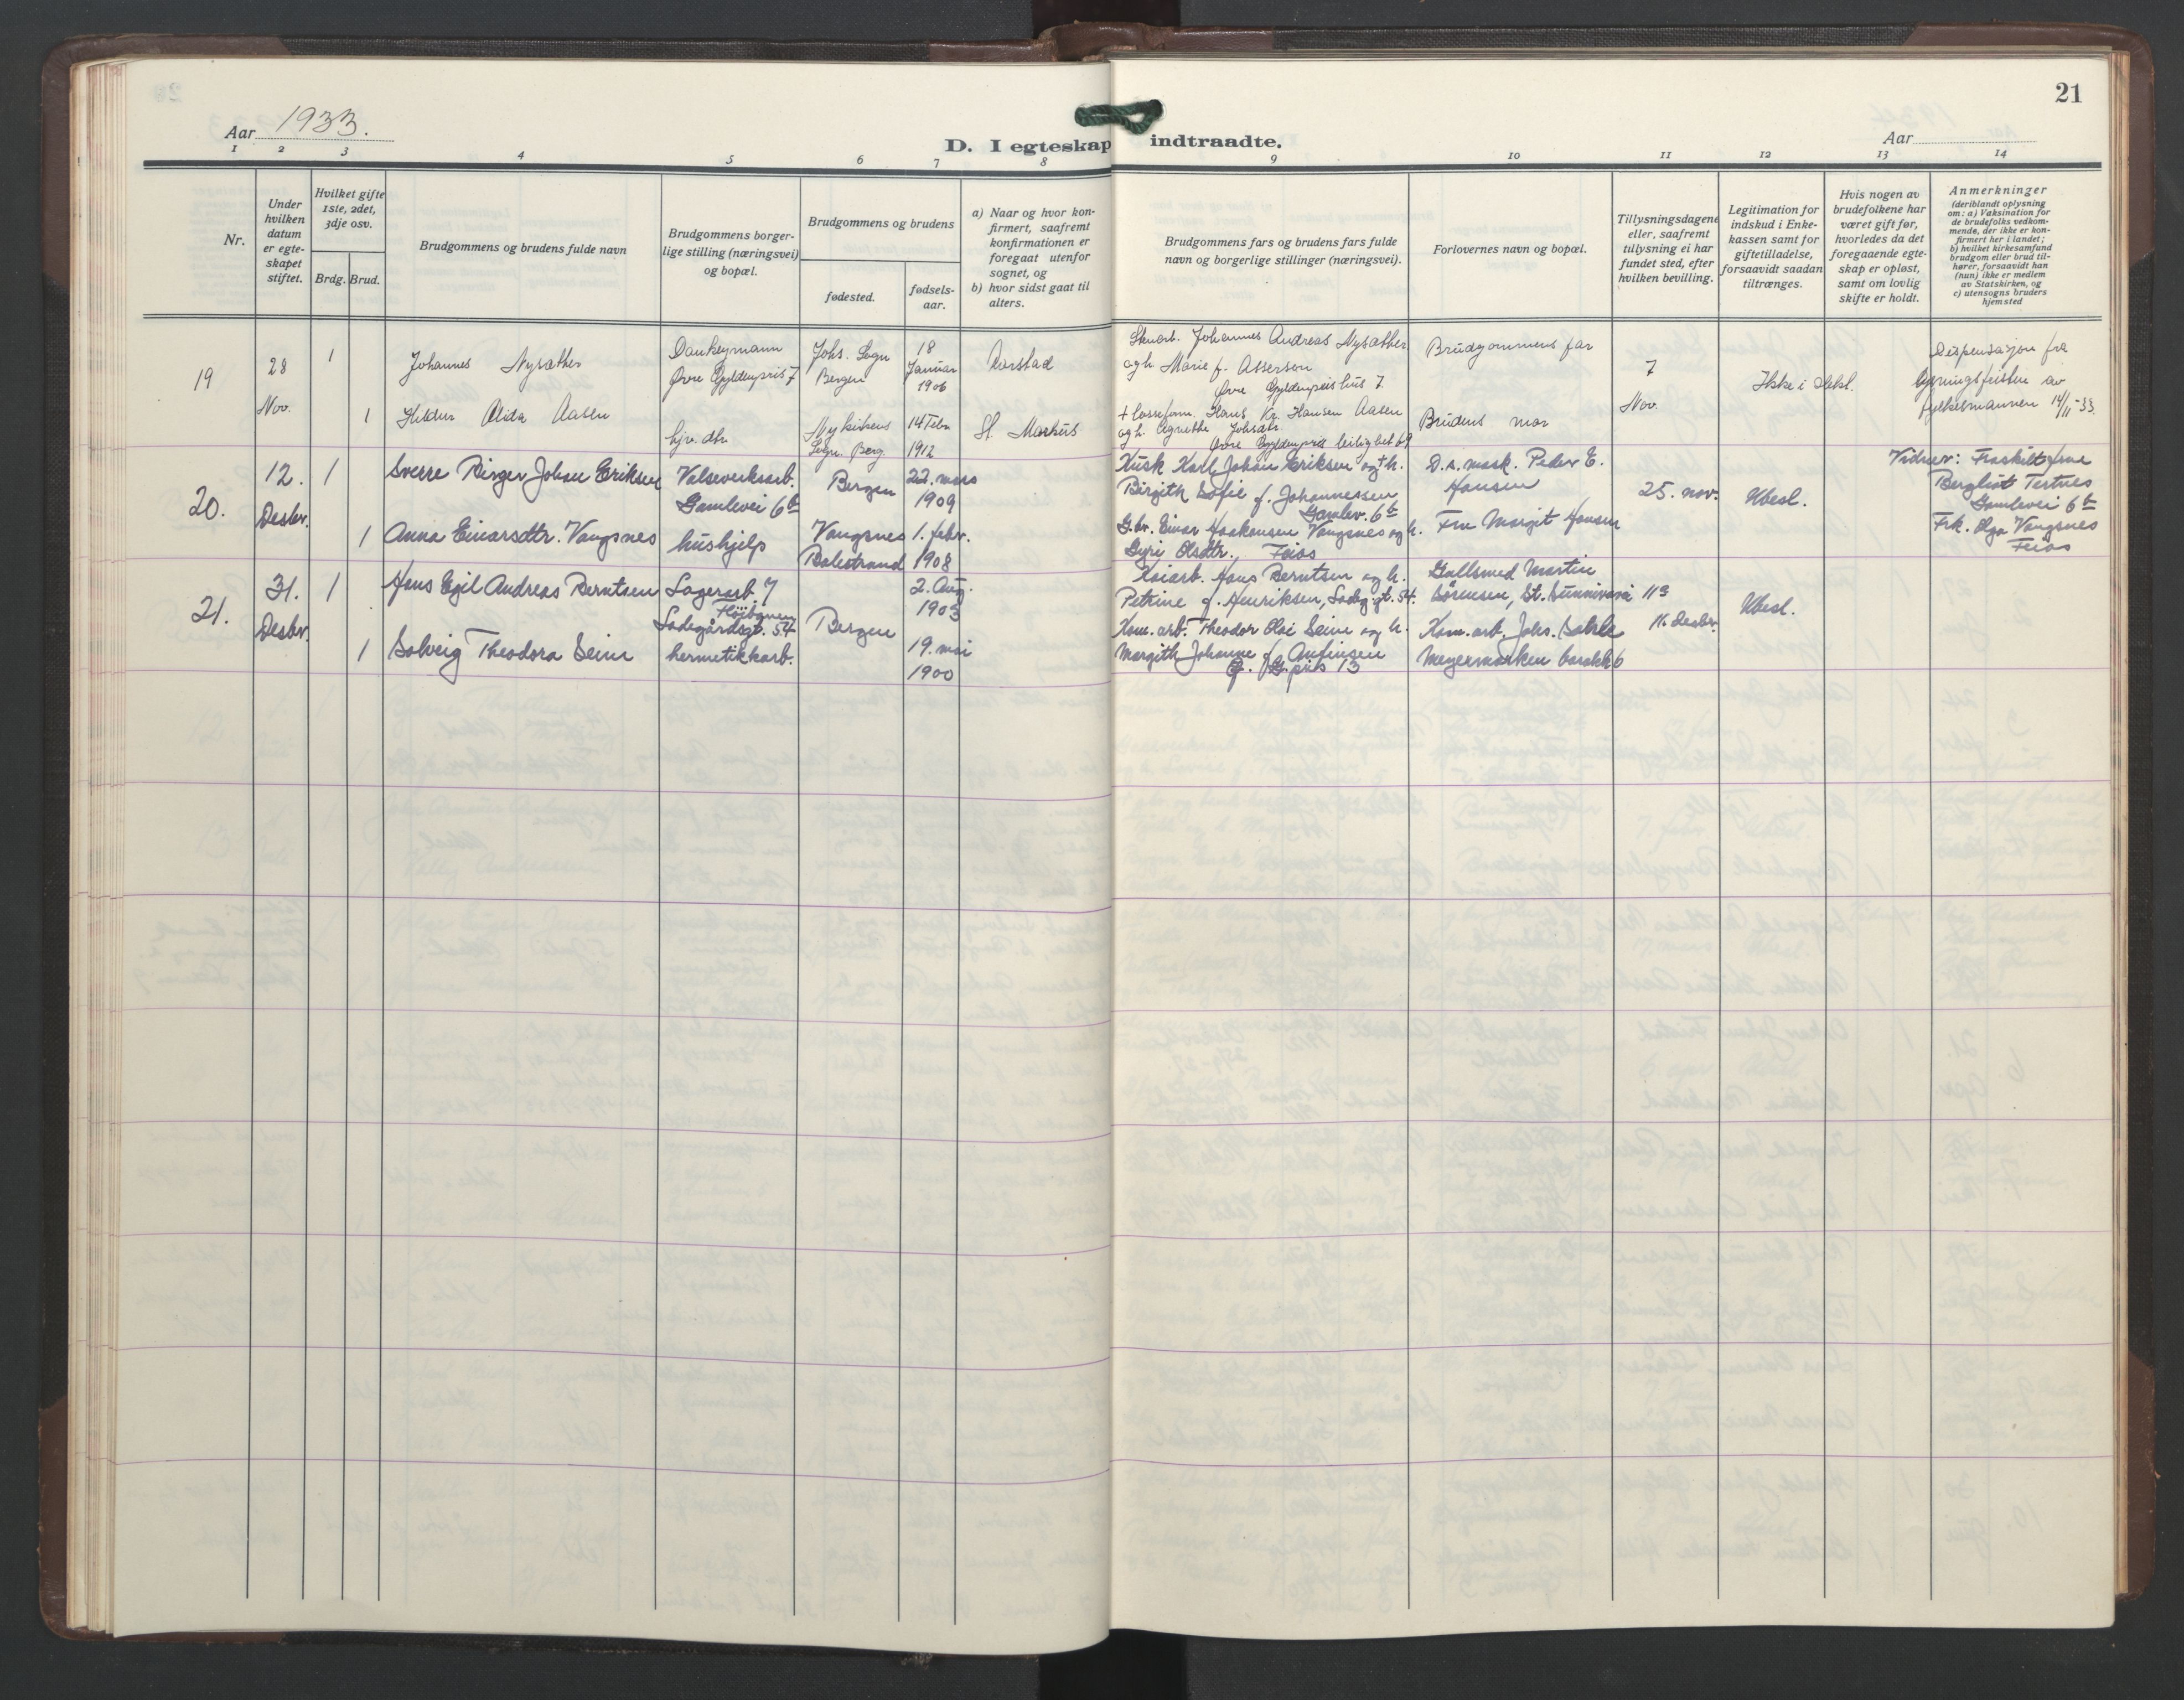 21
Aar 1933.
D. I egteskap indtraadte.
Aar
1 2 3 4 5 6 7 8 9 10 11 12 13 14
Nr.
Under
hvilken
datum
er egte-
skapet
stiftet.
Hvilket gifte
1ste, 2det,
3dje osv.
Brdg. Brud.
Brudgommens og brudens fulde navn
Brudgommens borger-
lige stilling (næringsvei)
og bopæl.
Brudgommens og brudens
fødested.
fødsels-
aar.
a) Naar og hvor kon-
firmert, saafremt
konfirmationen er
foregaat utenfor
sognet, og
b) hvor sidst gaat til
alters.
Brudgommens fars og brudens fars fulde
navn og borgerlige stillinger (næringsvei).
Forlovernes navn og bopæl.
Tillysningsdagene
eller, saafremt
tillysning ei har
fundet sted, efter
hvilken bevilling.
Legitimation for
indskud i Enke-
kassen samt for
giftetilladelse,
forsaavidt saadan
tiltrænges.
Hvis nogen av
brudefolkene har
været gift før,
hvorledes da det
foregaaende egte-
skap er opløst,
samt om lovlig
skifte er holdt.
Anmerkninger
(deriblandt oplysning
om: a) Vaksination for
de brudefolks vedkom-
mende, der ikke er kon-
firmert her i landet;
b) hvilket kirkesamfund
brudgom eller brud til-
hører, forsaavidt han
(hun) ikke er medlem
av Statskirken, og
c) utensogns bruders
hjemsted
19
28
Nov.
1
Johannes Nysæther
Dankeymann
Øvre Gyldenpris 7
Johs. Sogn
Bergen
18
Januar
1906
Aarstad
Johannes Andreas Nysæther
og h. Marie f. Assersen
Øvre Gyldenpris hus 7.
Brudgommens far
7
Nov.
Ikke i slekt.
Dispensasjon fra
lysningsfristen av
fylkesmannen 14/11-33.
1
Hildur Alida Aasen
hjv. dtr.
Nykirkens
Sogn. Berg.
14 Febr
1912
St. Markus
+ losseform. Hans Kr. Hansen Aasen
og h. Agnethe Johsdtr.
Øvre Gyldenpris leilighet 69
Brudens mor
20.
12.
Desbr.
1
Sverre Birger Johan Eriksen
Valseverksarb.
Gamlevei 6b
Bergen
22. mars
1909
Kusk Karl Johan Eriksen og h.
Birgith Sofie f. Johannessen
Gamlev. 6b
D.s. mask. Peder E.
Hansen
25. nov.
Ubesl.
Vidner: Fraskilt frue
Bergliot Tertnes
Gamlevei 6b
Frk. Olga Vangsnes
Feios
1
Anna Einarsdtr. Vangsnes
hushjelp
Vangsnes
Balestrand
1. febr.
1908
G.br. Einar Haakonsen Vangsnes og h.
Guri Olsdtr., Feios
Fru Margit Hansen
21.
31.
Desbr.
1
Hans Egil Andreas Berntsen
Lagerarb.
Ladegårdsgt. 54
Bergen
2. Aug.
1903
Kaiarb. Hans Berntsen og h.
Petrine f. Henriksen, Ladeg.gt. 54.
Gullsmed Martin
Sörensen, St. Sunnivavei 11a
16. Desbr.
Ubesl.
1
Solveig Theodora Seim
hermetikkarb.
19. mai
1900
Kom.arb. Theodor Olai Seim og h.
Margith Johanne f. Anfinsen
G.pris 13
Kom.arb. Johs. Sahle
Meyermarken barakk 6